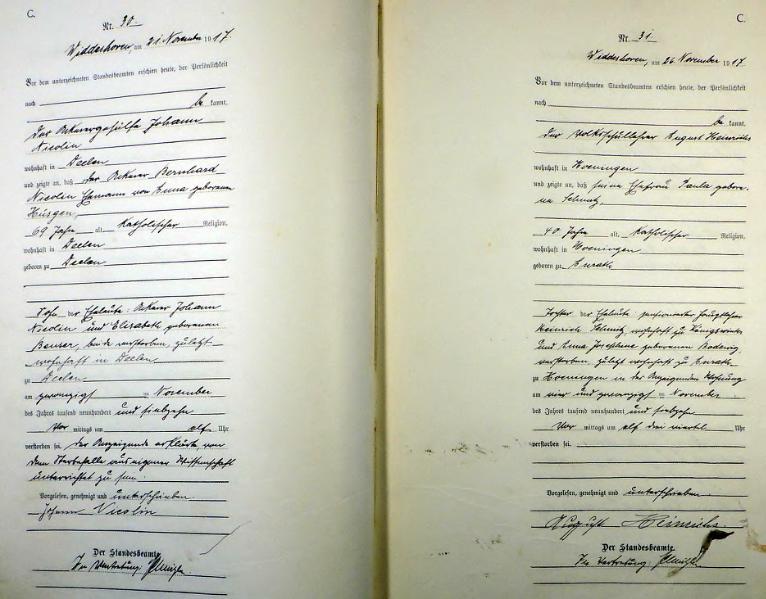 C.
Nr. 30
Widdeshoven, am 21. November 1917.
Vor dem unterzeichneten Standesbeamten erschien heute, der Persönlichkeit
nach
be kannt,
der Ackergehülfe Johann
Nicolin
wohnhaft in Deelen
und zeigte an, daß der Ackerer Bernhard
Nicolin Ehemann von Anna geborenen
Hüsgen,
69 Jahre alt, katholischer Religion,
wohnhaft in Deelen
geboren zu Deelen
Sohn der Eheleute: Ackerer Johann
Nicolin und Elisabeth geborenen
beide verstorben, zuletzt
wohnhaft in Deelen
zu Deelen
am zwanzigsten November
des Jahres tausend neunhundert und siebzehn
Vor mittags um elf Uhr
verstorben sei. Der Anzeigende erklärte, von
dem Sterbefalle aus eigener Wissenschaft
unterrichtet zu sein.
Vorgelesen, genehmigt und unterschrieben
Johann Nicolin
Der Standesbeamte.
In Vertretung:
C.
Nr. 31
Widdeshoven, am 26. November 1917.
Vor dem unterzeichneten Standesbeamten erschien heute, der Persönlichkeit
nach
be kannt,
der Volksschullehrer August Heinrichs
wohnhaft in Hoeningen
und zeigte an, daß seine Ehefrau Paula gebore-
ne Schmitz,
40 Jahre alt, katholischer Religion,
wohnhaft in Hoeningen
geboren zu Anrath
Tochter der Eheleute pensionierter Hauptlehrer
Heinrich Schmitz, wohnhaft zu Königswinter
und Anna Josephine geborenen
verstorben, zuletzt wohnhaft zu Anrath
zu Hoeningen in der Anzeigenden Wohnung
am vier und zwanzigsten November
des Jahres tausend neunhundert und siebzehn
Vor mittags um elf drei viertel Uhr
verstorben sei.
Vorgelesen, genehmigt und unterschrieben
August Heinrichs
Der Standesbeamte.
In Vertretung: